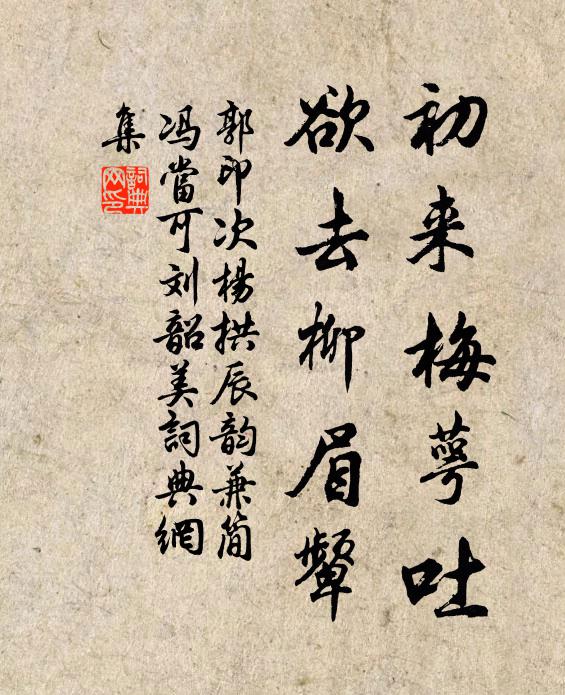 初来梅萼吐
欲去柳眉颦
郭印次楊拱辰韵兼简
冯當可刘韶美詞典網
集
詞典
网印